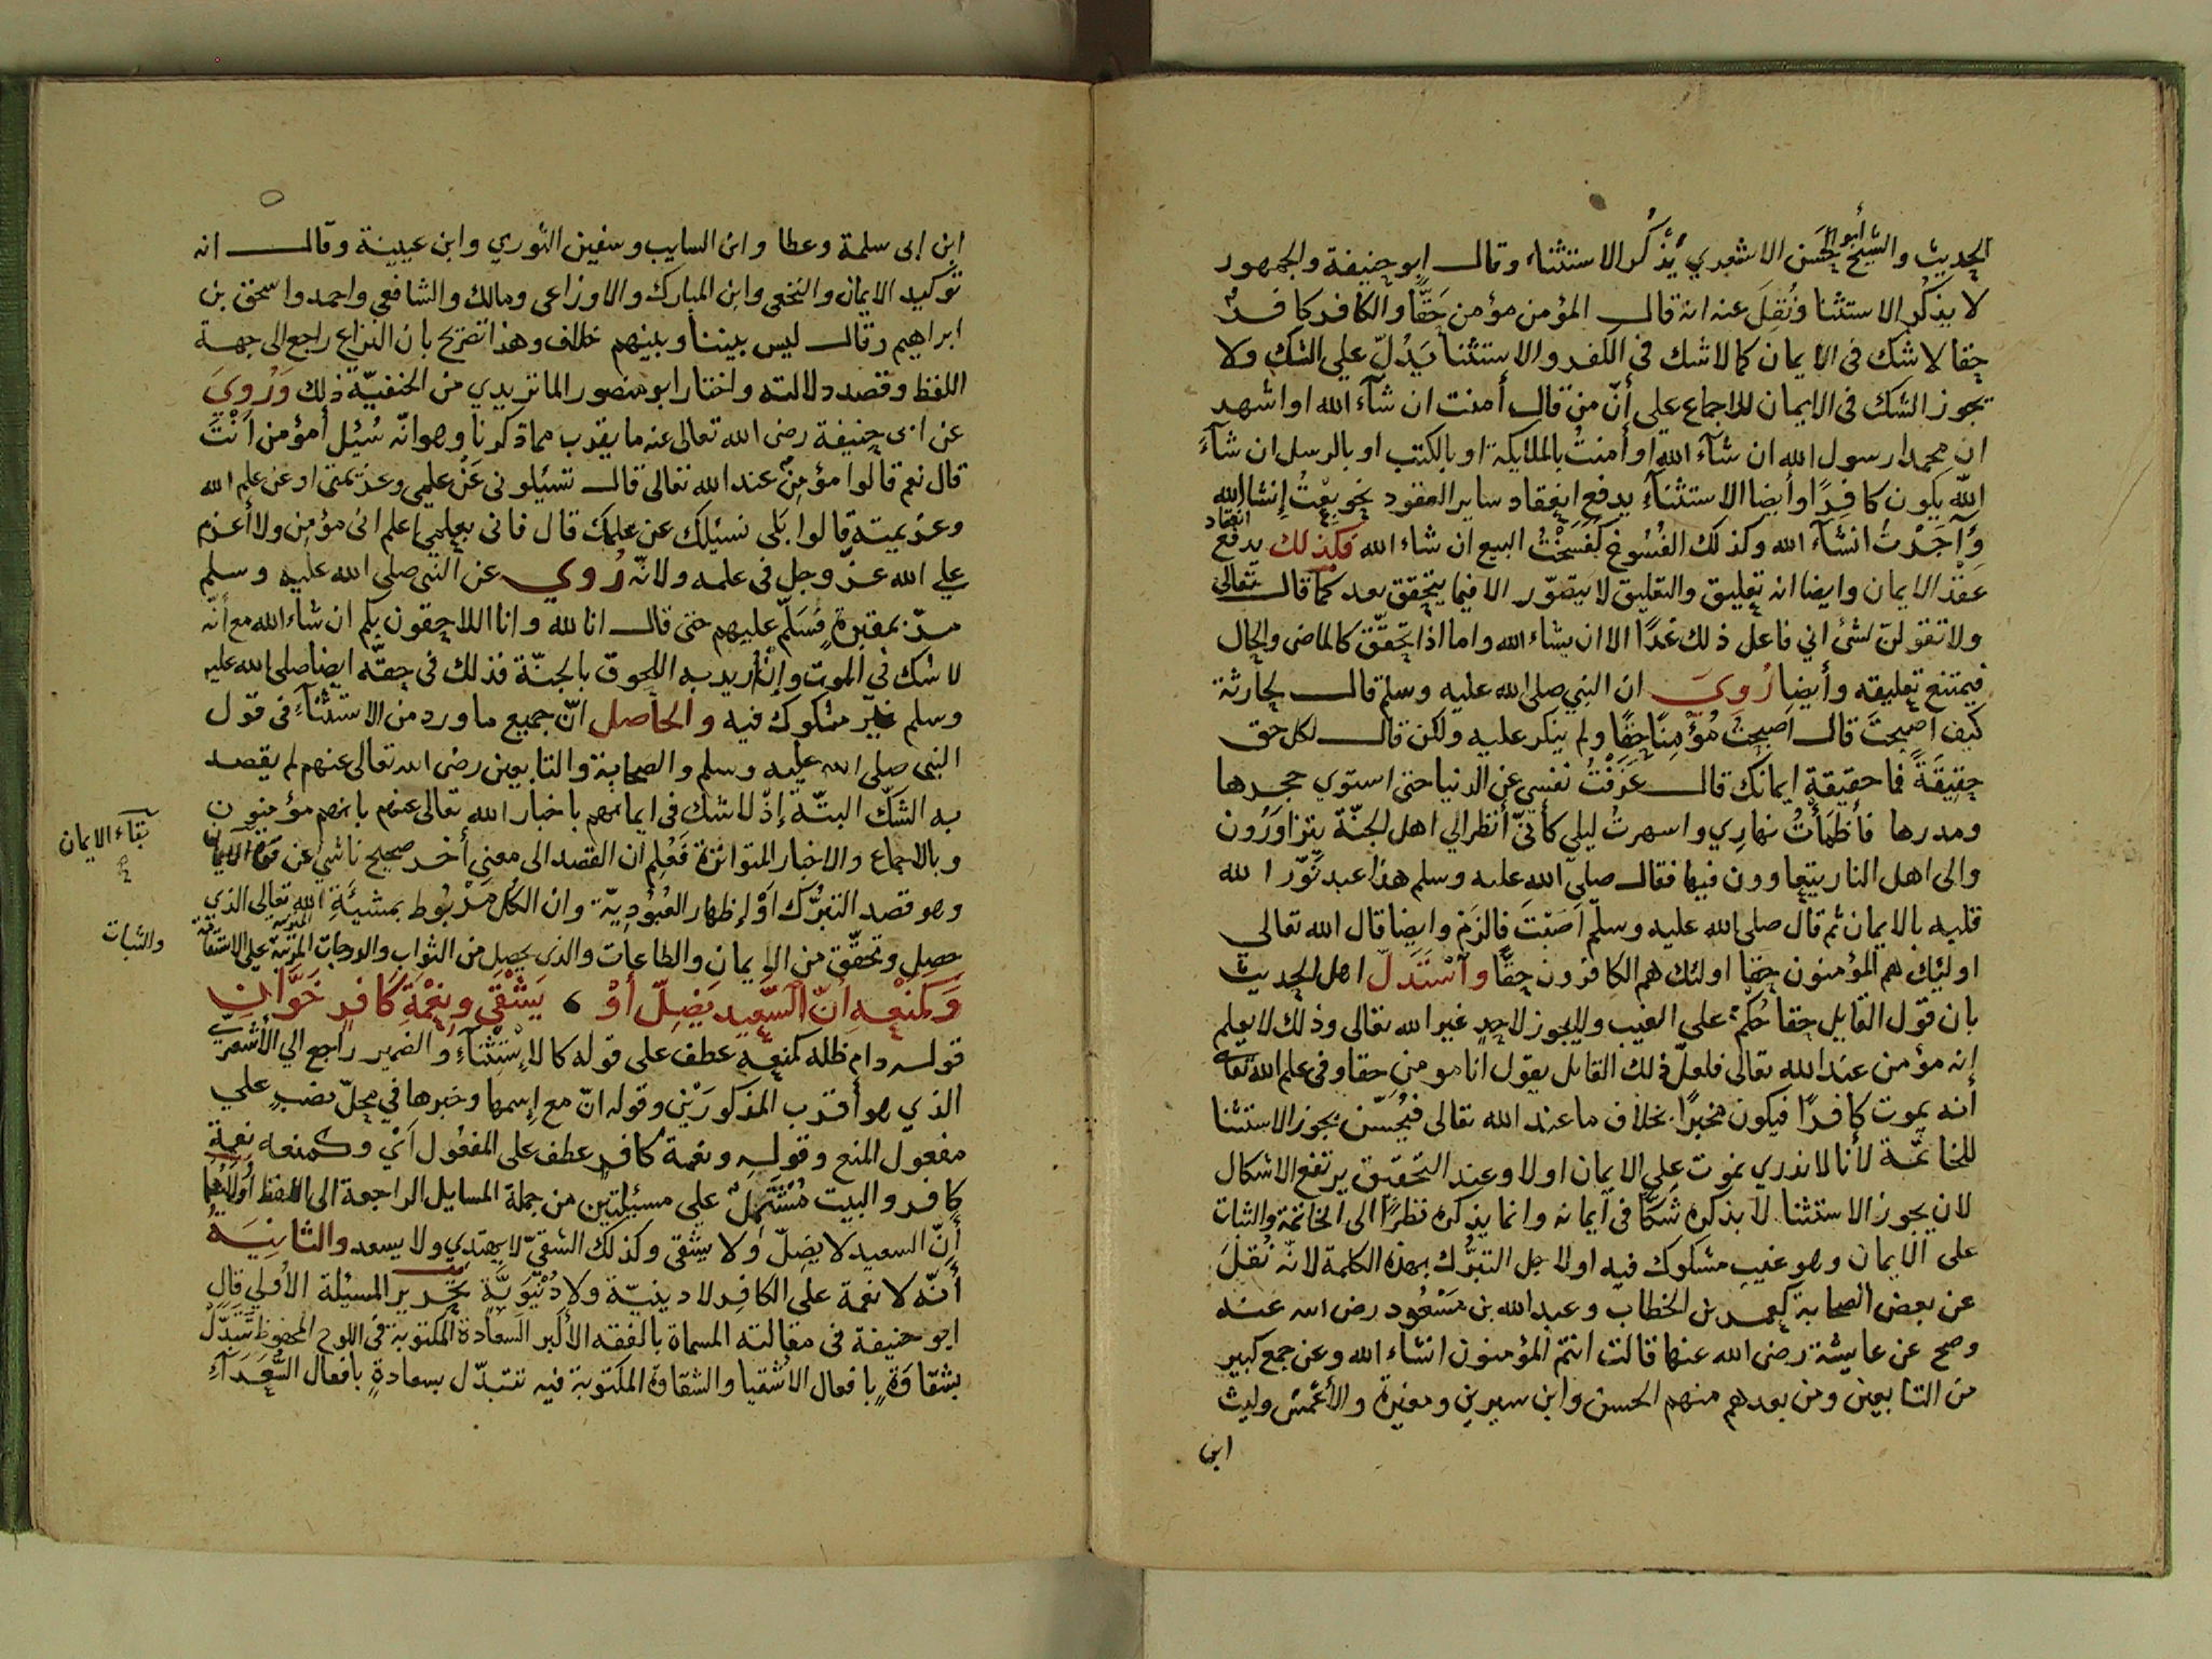 الحديث والشيخ أبو الحسن الاشعري يَذْكُر الاستثناء وقال ابو حنيفة والجمهور
لا يَذْكُر الاستثنا ونُقِلَ عنه انه قال المؤمن مؤمن حَقًّا والكافر كافرٌ
حقا لا شك فى الايمان كما لا شك فى الكفر والاستثنا يَدُلّ علي الشك ولا
يجوز الشك فى الايمان للاجماع علي أنّ من قال أمنت ان شآء الله او اشهد
ان محمدا رسول الله ان شآء الله او أمنتُ بالملايكة او بالكتب او بالرسل ان شآءَ
اللّه يكون كافرًا وأيضا الاستثنآء يرفع انعقاد ساير العقود نحو بِعْتُ إنشاالله
وَآجَرْتُ انشآء الله وكذلك الفُسُوخ كفَسَخْتُ البيع ان شاء الله فكذلك يرفع انعقاد
عَقْدَ الايمان وايضا انه تعليق والتعليق لا يتصوّر الا فيما يتحقق بعد كما قال تعالى
ولا تقولن لشئ اني فاعل ذلك غدًا الا ان يشاء الله واما اذا تحقّق كالماضى والحال
فيمتنع تعليقه وأيضا رُوِيَ ان النبي صلى الله عليه وسلم قال لحارثة
كيف اصبحتَ قال اصبحتُ مُؤْمِنًا حقًا ولم ينكر عليه ولكن قال لكل حق
حقِيقَةً فما حقيقةِ ايمانك قال عَزَفْتُ نفسي عن الدنيا حتى استوي حجرها
ومدرها فأظمَأْتُ نهارِي واسهرتُ ليلي كأنّي أنظر الي اهل الجنّة يتزاوَرُون
والى اهل النار يتعاوون فيها فقال صلى الله عليه وسلم هذا عبد نَوّر الله
قلبه بالايمان ثم قال صلى الله عليه وسلّم اَصَبْتَ فالزَم وايضا قال الله تعالى
اوليك هم المؤمنون حقا اولئك هم الكافرون حقًّا وآسْتَدَلّ اهل الحديث
بان قول القايل حقا حُكمٌ علي الغيب ولا يجوز لاحدٍ غير الله تعالى وذلك لا يعلم
إنه مؤمن عند الله تعالى فلعلّ ذلك القايل يقول انا مومن حقا وفى علم الله تعالى
أنه يموت كافرًا فيكون مخبرًا بخلاف ما عند الله تعالى فيُحسّن يجوز الاستثنا
للخاتمّة لأنا لا ندري يموت علي الايمان اولا وعند التحقيق يرتفع الاشكال
لان يجوز الاستثنا لا بذكره شَكًّا فى ايمانه وانما يذكره نظرًا الى الخاتمة والثبات
على الايمان وهو غيب مشكوك فيه او لاجل التبرُّك بهذه الكلمة لانه نُقِلَ
عن بعض الصحابة كعمر بن الخطاب وعبد الله بن مَسْعُود رضى الله عنه
وصح عن عايشة رضى الله عنها قالت انتم المؤمنون انشاء الله وعن جمع كبير
من التابعين ومن بعدهم منهم الحسن وابن سيرين ومغيرة والأعْمش وليث
ابن
ابن ابى سلمة وعطا وابن السايب وسفين الثوري وابن عيينة وقال انه
توكيد الايمان والنخعى وابن المبارك والاوزاعى ومالك والشافعي واحمد واسحق بن
ابراهيم وقال ليس بيننا وبينهم خلاف وهذا تصريح بان النزاع راجع الى جهة
اللفظ وقصد دلالته واختار ابو منصور الماتريدي من الحنفيّة ذلك وَرُوِيَ
عن ابى حنيفة رضى الله تعالى عنه ما يقرب مما ذكرنا وهو انّه سُئِل أمؤمن أَنْتَ
قال نعم قالوا مؤمِنٌ عند الله تعالى قال تسئلونى عَنْ علمى وعزيمتى او عن علم الله
وعزيمته قالوا بَلَى نسئلك عن علمك قال فانى بعلمي اعلم انى مؤمن ولا أعزم
علي الله عزّ وجل فى علمه ولانّه رُوي عن النبى صلى الله عليه وسلم
مرّ بمقبرةٍ فَسَلّم عليهم حتى قال انا لله وانا اللاحقون بكم ان شاء الله مع أنّه
لا شك فى الموت وإِنْ أُريد به اللحوق بالجنّة فذلك فى حقّه ايضا صلى الله عليه
وسلم غير مشكوك فيه والحاصل انّ جميع ما ورد من الاستثنآء فى قول
النبى صلى الله عليه وسلم والصحابة والتابعين رضى الله تعالى عنهم لم يقصد
به الشكّ البتّة إذ لا شك فى ايمانهم باخبار الله تعالى عنهم بانهم مؤمنون
وبالاجماع والاخبار المتواترة فَعُلِم ان القصد الى معنى أخر صحيح ناشي عن قوة الايمان
بقآء الايمان
وهو قصد التبرُّك اَوْ إظهار العُبُودِيّة وان الكُل مَرْبُوط بمشيئَةِ الله تعالى الذي
حصل وتحقّق من الايمان والطاعات والذى يحصل من الثواب والدرجات المرتبة علي الاستقامة
والثبات
وَكَمَنْعِهِ اَنّ السّعيد يَضِلّ أَوْ ، يَشْقَي ونِعْمَةِ كافرٍ خَوَّانِ
قوله دام ظله كمنعهِ عطف على قوله كالإسْتِثْنآءِ والضمير راجع الي الأشعريّ
الذي هو أقرب المذكورَيْن وقوله انّ مع إسمها وخبرها في محلّ نصبٍ علي
مفعول المنع وقولهِ ونعمة كافرٍ عطف على المفعُول اَيْ وكمنعه نِعمة
كافر والبيت مُشْتَمِلٌ علي مسئلتين من جملة المسايل الراجعة الى اللفظ اُولاهُما
أَنّ السعيد لا يضِلّ وَلا يشقى وكذلك الشقيّ لا يهتدِي ولا يسعد والثانِيَة
أنّه لا نعمة على الكافِر لا دينيّة ولا دُنْيَوِيَّة تحرير المسئلة الأولي قال
ابو حنيفة فى مقالته المسماة بالفقه الأكبر السعادة المكتوبة فى اللوح المحفوظ تتبدّل
بشقاوَةٍ بافعال الأشقيا والشقاوة المكتوبة فيه تتبدّل بسعادةٍ بافعال السُّعَدَآءِ